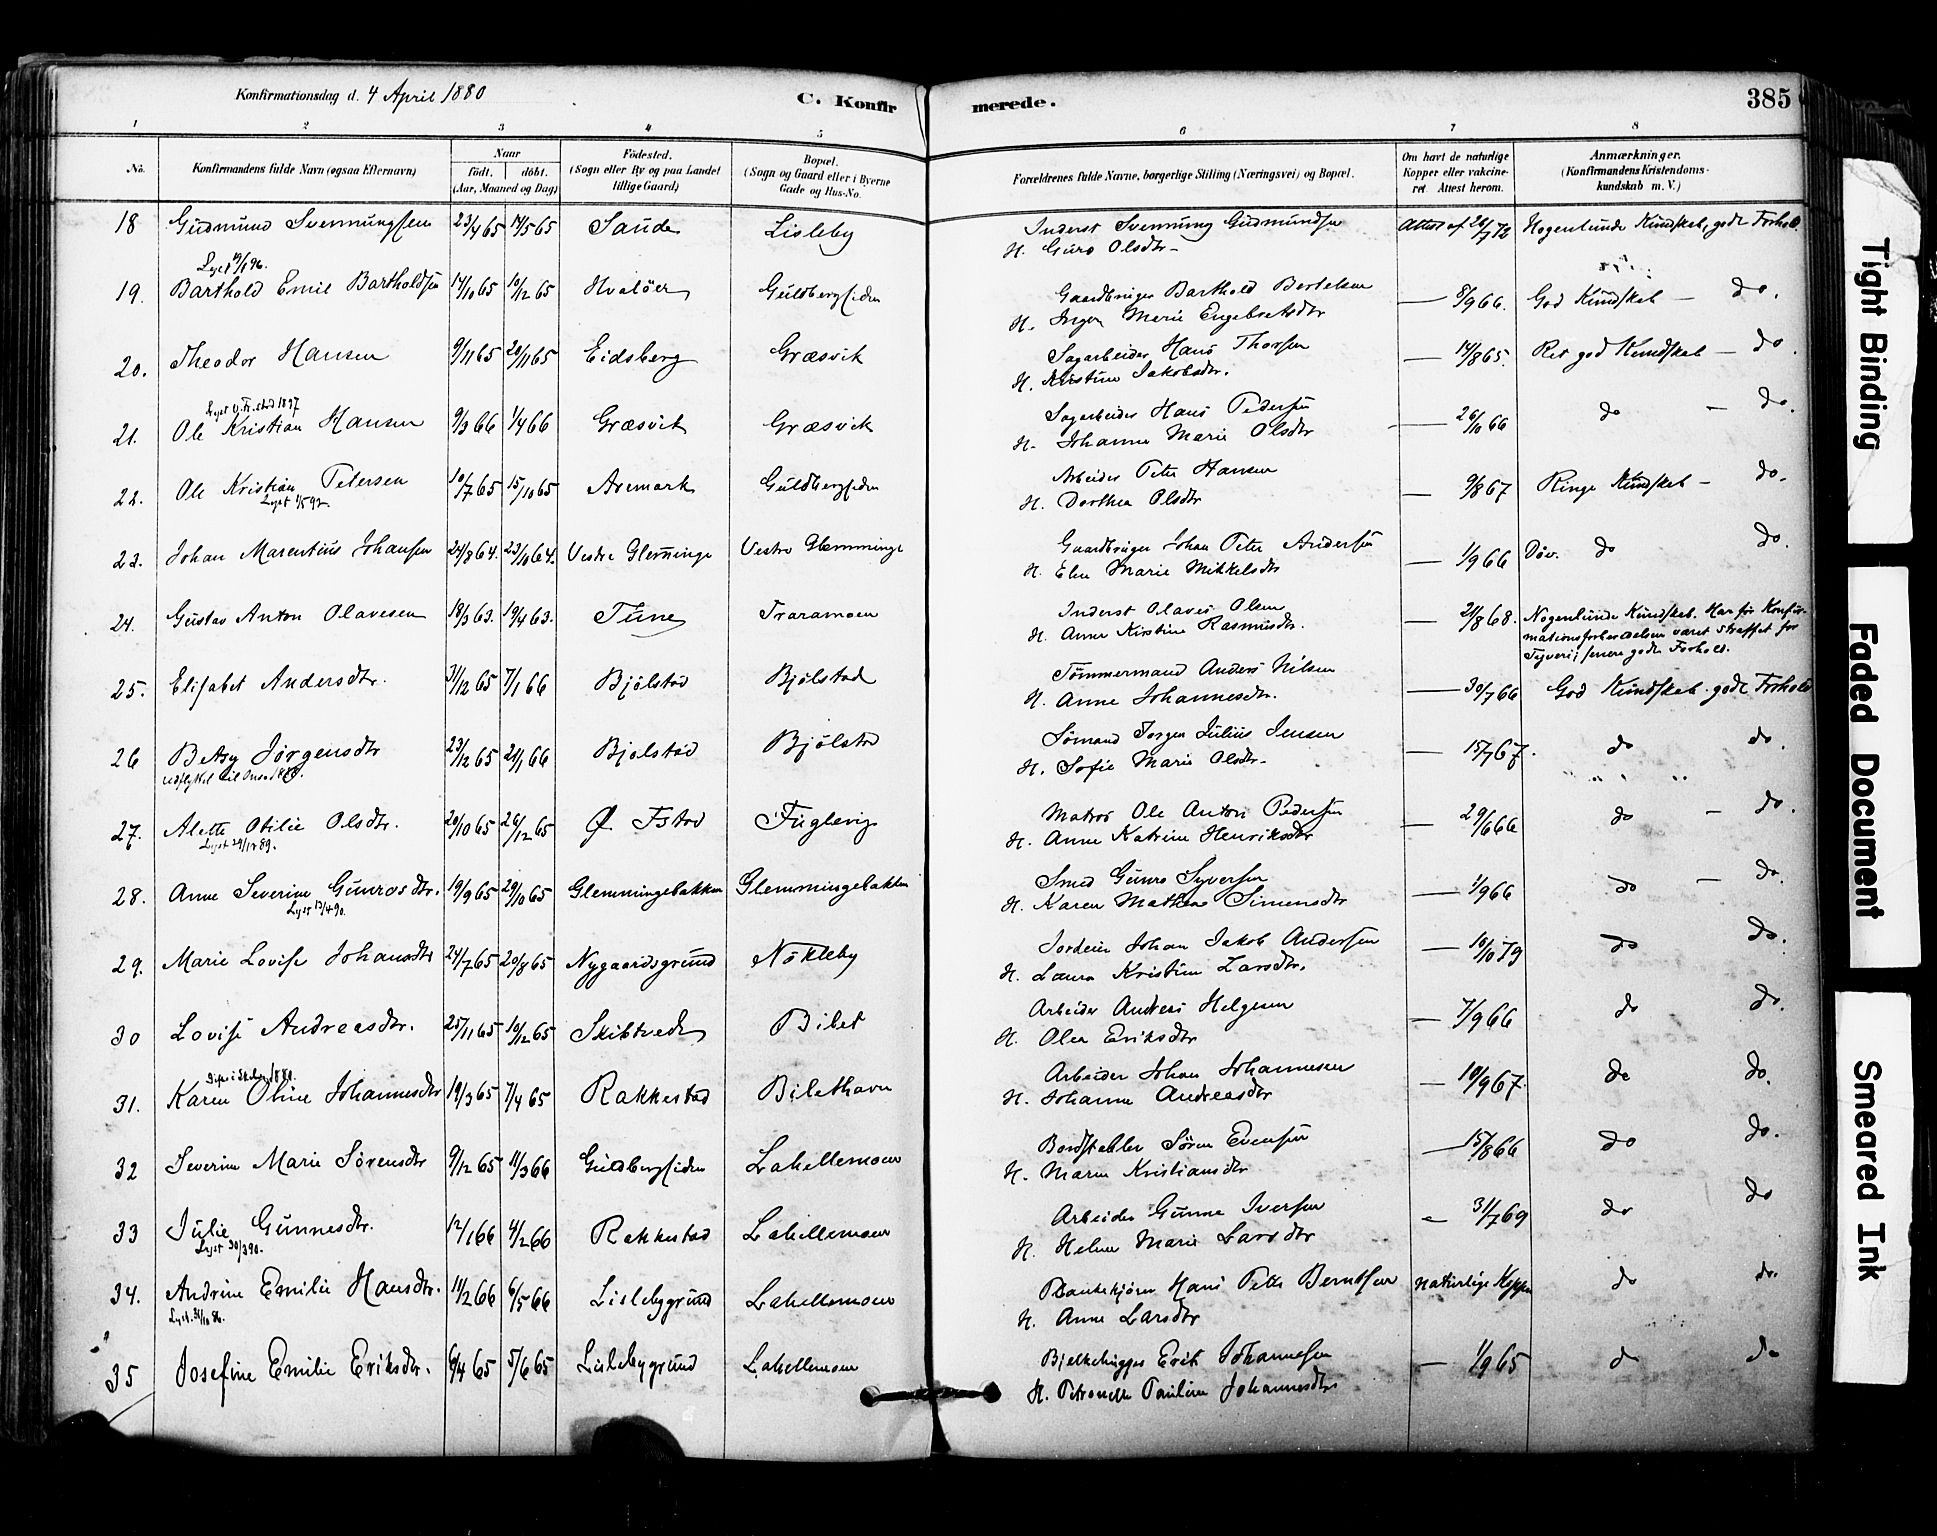 Konfirmationsdag d. 4 April 1880
C. Konfirmerede.
385
1 2 3 4 5 6 7 8
No.
Konfirmandens fulde Navn (ogsaa Efternavn)
Naar
født. døbt.
(Aar, Maaned og Dag)
Fødested.
(Sogn eller By og paa Landet
tillige Gaard)
Bopæl.
(Sogn og Gaard eller i Byerne
Gade og Hus-No.
Forældrenes fulde Navne, borgerlige Stilling (Næringsvei) og Bopæl.
Om havt de naturlige
Kopper eller vaccine-
ret. Attest herom.
Anmærkninger.
(Konfirmandens Kristendoms-
kundskab m. V.)
18 Gudmund Svennungsen 23/4 65 14/5 65 Saude Lisleby Inderst Svennung Gudmundsen Attest af 26/7 72 Nogenlunde Kundskab, godt Forhold.
H. Guro Olsdtr
Lyst 19/1 96.
19. Barthold Emil Bartholdsen 14/10 65 10/12 65 Hvaløer Guldbergsiden Gaardbruger Barthold Bertelsen — 8/9 66. God Kundskab — do.
H. Inger Marie Engebretsdtr
20. Theodor Hansen 9/11 65 20/11 65 Eidsberg Græsvik Sagarbeider Hans Thorsen — 14/8 65. Ret god Kundskab — do.
H. Kristine Jakobsdtr.
21. Ole Kristian Hansen 9/3 66 1/4 66 Græsvik Græsvik Sagarbeider Hans Pedersen — 26/10 66 do — do.
H. Johanne Marie Olsdtr
22. Ole Kristian Petersen 10/7 65 15/10 65 Aremark Guldbergsiden Arbeider Peter Hansen — 9/8 67 Ringe Kundskab — do.
Lyst 1/5 92. H. Dorthea Olsdtr
23. Johan Marentius Johansen 24/8 64. 23/10 64. Vestre Glemminge Vestre Glemminge Gaardbruger Johan Peter Andersen — 1/9 66 Døv. do do.
H. Elen Marie Mikkelsdtr
24. Gustav Anton Olavesen 18/3 63. 19/4 63. Tune Traramoen Inderst Olaves Olsen — 21/8 68. Nogenlunde Kundskab. Har før Konfir-
H. Anne Kirstine Rasmusdtr. mationsforberedelsen været straffet for
Tyveri; senere godt Forhold.
25. Elisabet Andersdtr. 31/12 65 7/1 66 Bjølstad Bjølstad Tømmermand Anders Nilsen — 30/7 66 God Kundskab. godt Forhold
H. Anne Johannesdtr.
26 Betsy Jørgensdtr 23/12 65 21/1 66 Bjølstad Bjølstad Sømand Jørgen Julius Jensen — 15/7 67. do do.
H. Sofie Marie Olsdtr.
27. Alette Otilie Olsdtr. 20/10 65 26/12 65 Ø. Fstad Fuglevig Matros Ole Anton Pedersen — 29/6 66 do — do.
H. Anne Katrine Henriksdtr
28. Anne Severine Gunrosdtr. 19/9 65 29/10 65 Glemmingebakken Glemmingebakken Smed Gunro Syversen — 1/9 66 do — do.
Lyst 13/4 90. H. Karen Mathea Simensdtr
29. Marie Lovise Johansdtr 24/7 65 20/8 65 Nygaardsgrund Nøkleby Jordeier Johan Jakob Andersen — 10/10 79 do do.
H. Laura Kristine Larsdtr.
30 Lovise Andreasdtr. 25/11 65 10/12 65 Skibtvedt Bilet Arbeider Andreas Helgesen — 7/9 66 do do.
H. Olea Eriksdtr
31. Karen Oline Johannesdtr 19/3 65 7/4 65 Rakkestad Bilethavn Arbeider Johan Johannesen — 10/9 67. do do.
H. Johanne Andreasdtr
32 Severine Marie Sørensdtr 9/12 65 11/3 66 Guldbergsiden Lahellemoen Bordstabler Søren Evensen — 15/8 66 do do.
H. Maren Kristiansdtr
33 Julie Gunnesdtr. 12/1 66 4/2 66 Rakkestad Lahellemoen Arbeider Gunne Iversen — 31/7 69 do do
Lyst 30/3 90. H. Helene Marie Larsdtr
34. Andrine Emilie Hansdtr. 11/2 66 6/5 66 Lislebygrund Lahellemoen Plankekjører Hans Peter Berntsen naturlige Kopper do do.
Lyst. 31/10 86. H. Anne Larsdtr
35 Josefine Emilie Eriksdtr. 6/4 65 5/6 65 Lislebygrund Lahellemoen Bjelkehugger Erik Johannesen — 1/9 65 do do
H. Petronelle Pauline Johannesdtr
Tight Binding
Faded Document
Smeared Ink